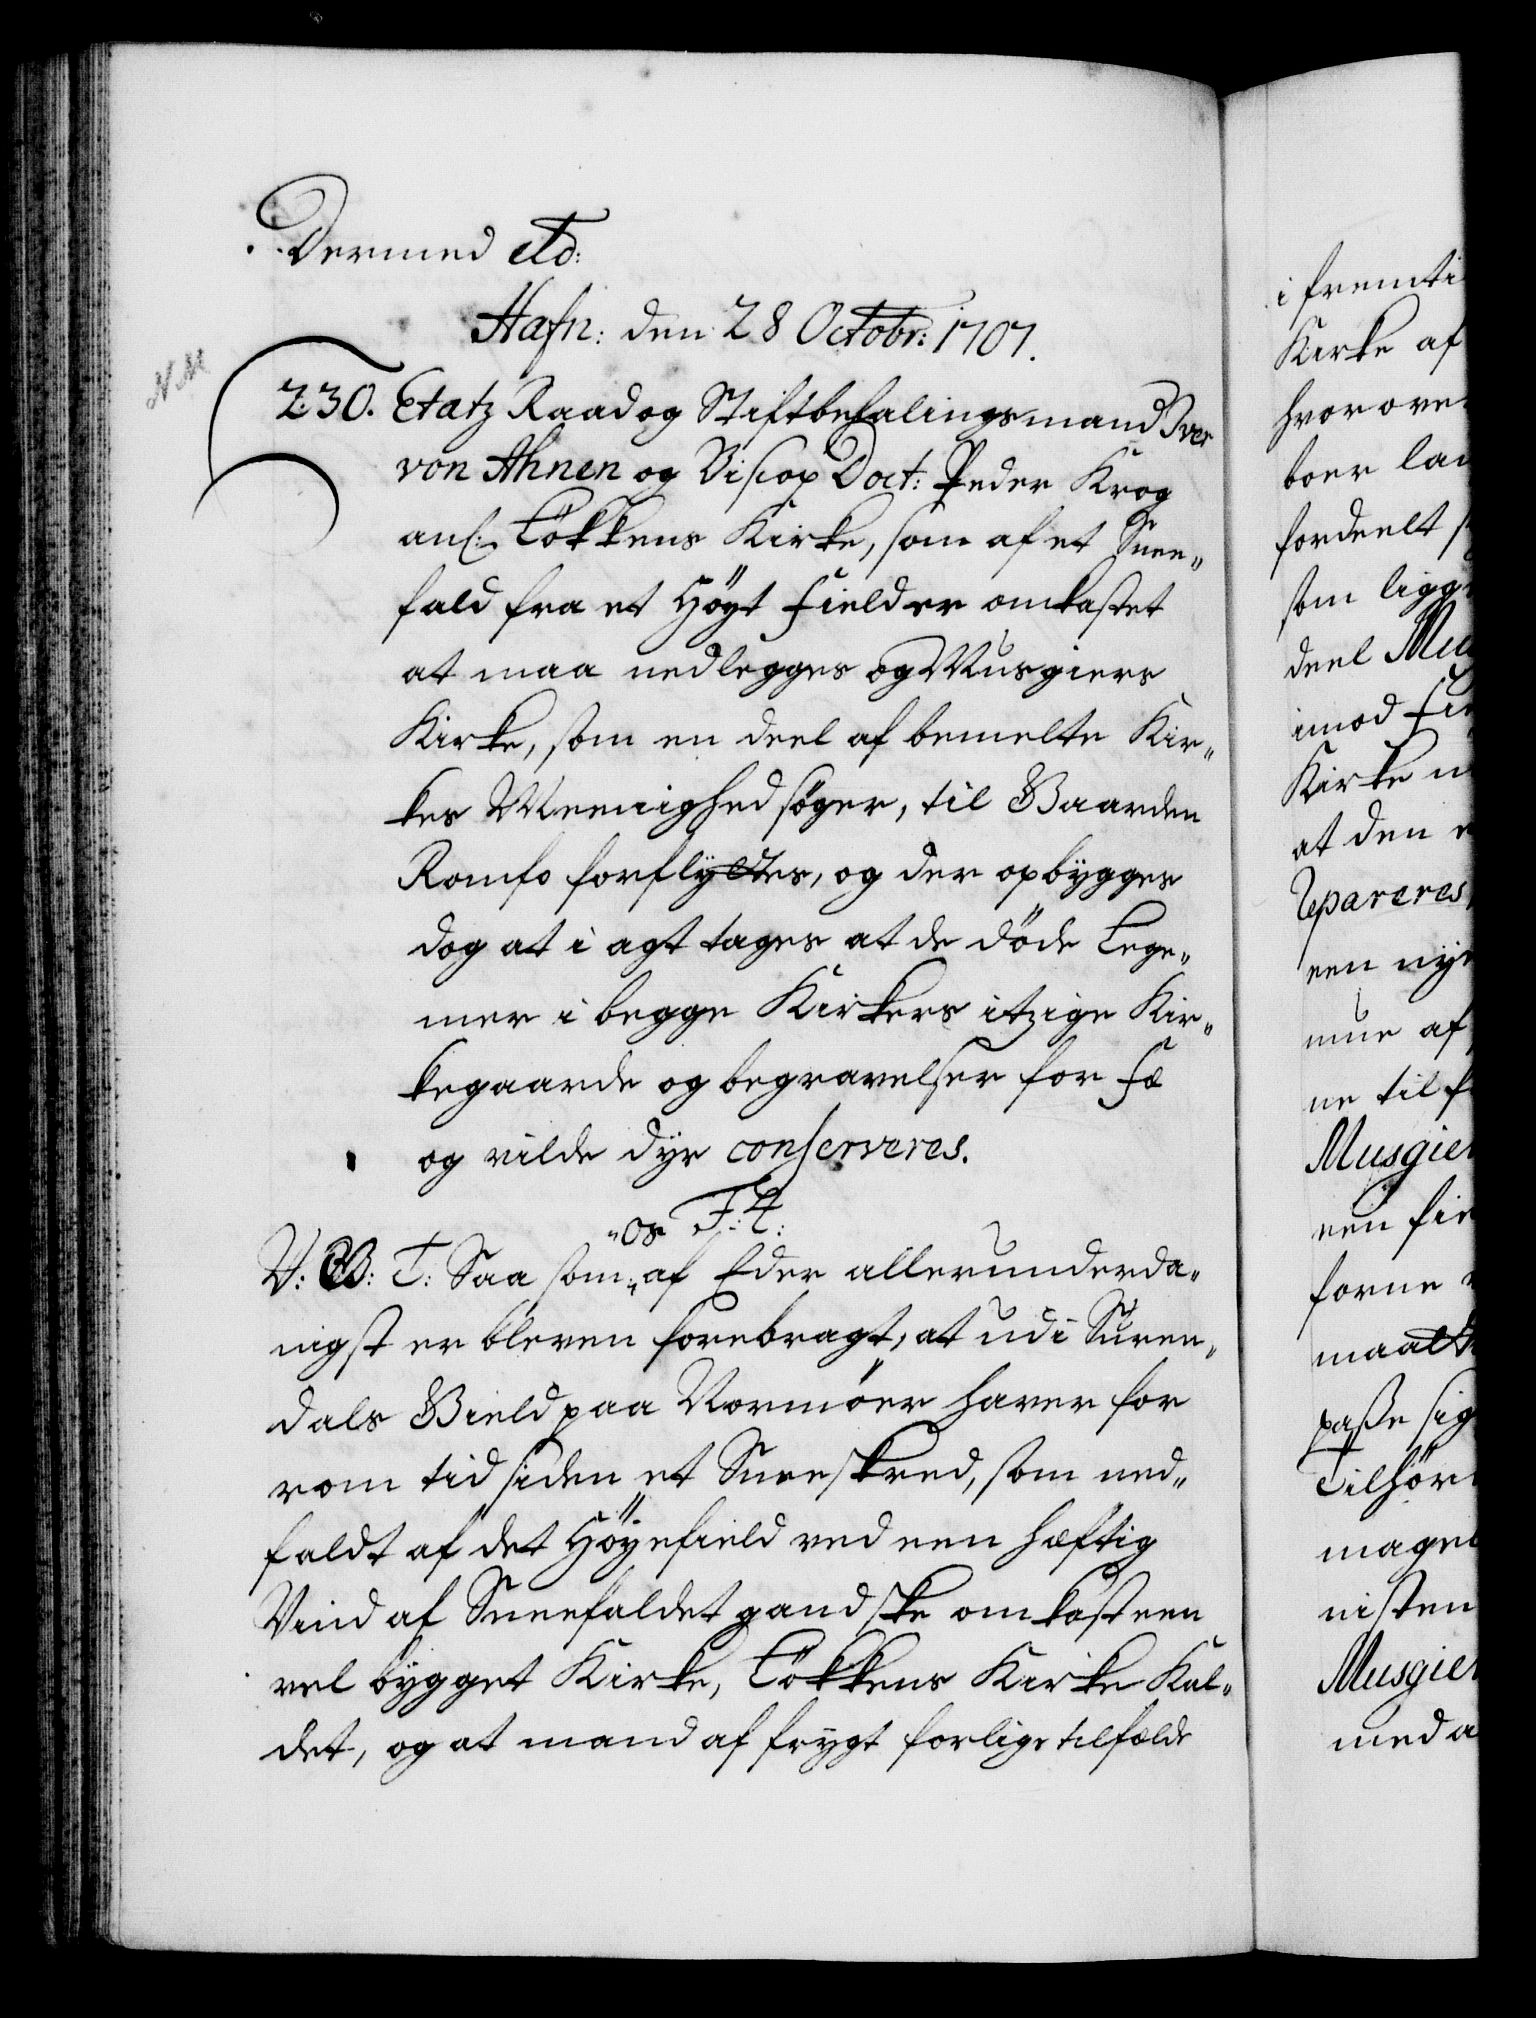 Dermed etc:
Hafn: den 28 Octobr: 1707.
N M
230. Etatz Raad og Stiftbefalingsmand Iver
von Ahnen og Biscop Doct: Peder Krog
anl: Tökkens Kirke, som af et Snee„
fald fra et Høyt Field er omkastet
at maa nedlegges og Musgiers
Kirke, som en deel af bemelte Kir„
kes Meenighed søger, til Gaarden
Romfo forflyttes, og der opbygges
dog at i agt tages at de døde Lege„
mer i begge Kirkers itzige Kir„
kegaarde og begravelser for Fæ
og vilde dyr conserveres.
F: 4:
V: G: T: Saa som „os af Eder allerunderda„
nigst er bleven forebragt, at udi Suren„
dals Gield paa Normöer haver for
rom tid siden et Sneeskred, som ned„
faldt af det Höyefield ved een hæftig
Vind af Sneefaldet gandske omkast een
vel bygget Kirke, Tökkens Kirke Kal„
det, og at mand af frygt for lige tilfælde
i fremti
Kirke af
hvor ove
boer lan
fordeelt
som ligge
deel Mu
imod Fi
Kirke
at den
repareres
een nye
mue af
ne til
Musgier
een fie
forne
maal
passe sig
Tilhör
mage
nisten
Musgier
med a